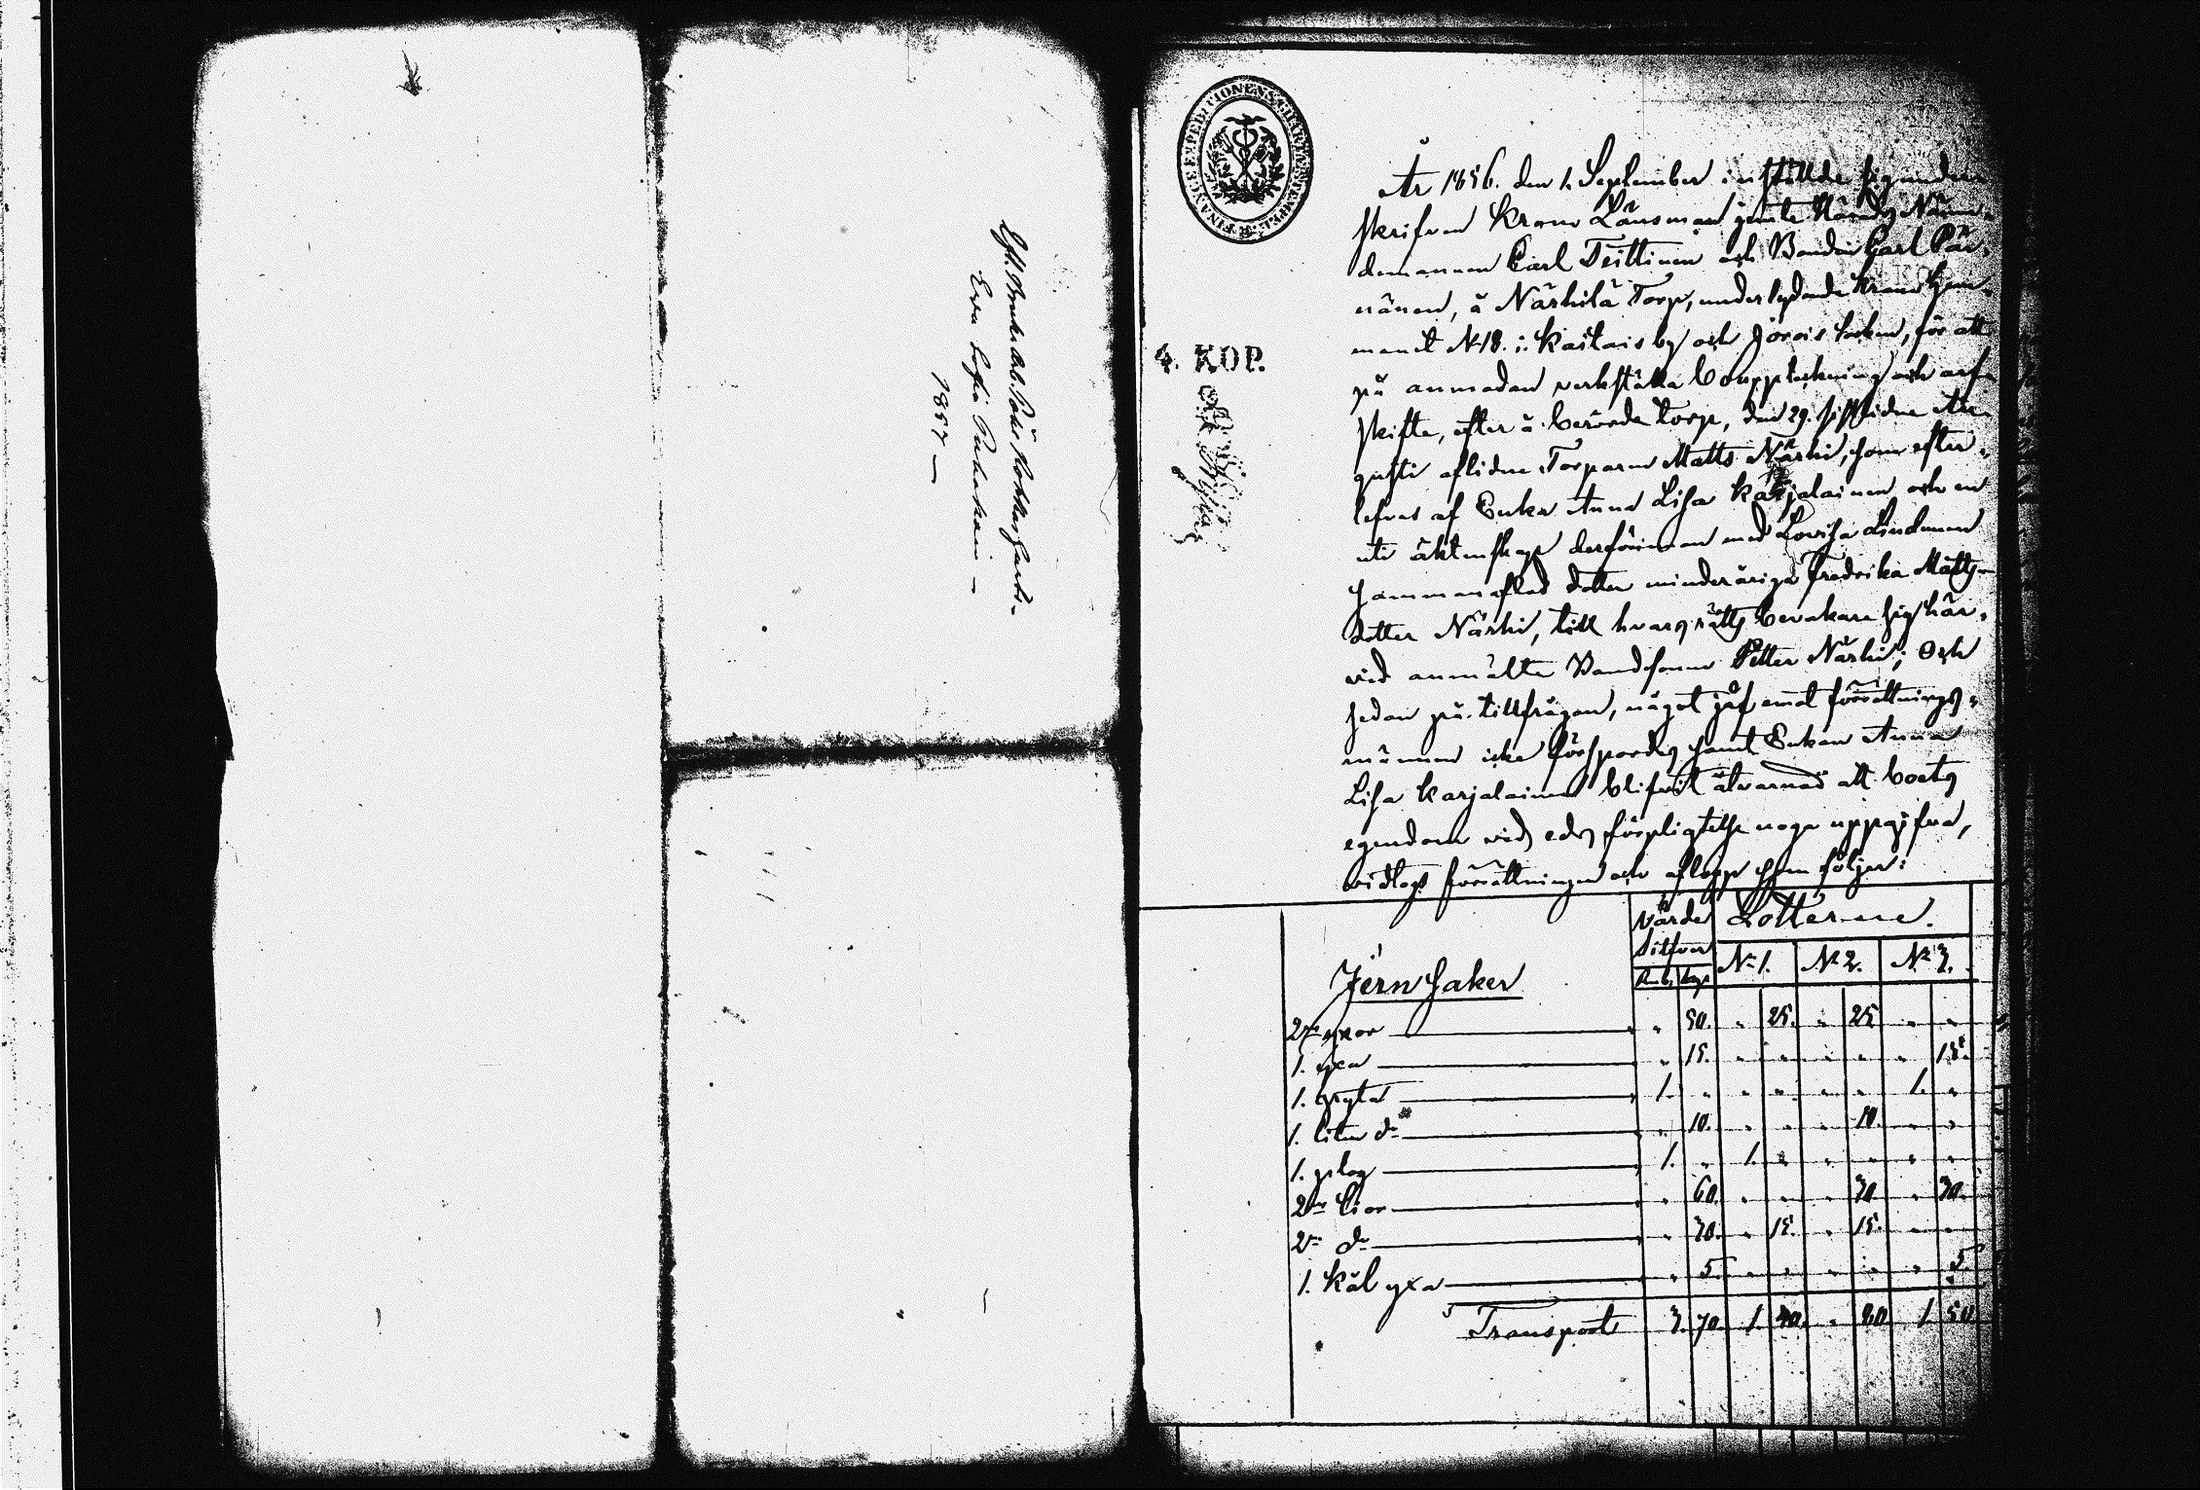 1857 —
Eva Sofia
FINANCE EXPEDITIONENS CHARTÆ STEMPEL
4. KOP.
År 1856. den 1. September instälde sig under
skrifven Krono Länsman jemte Härads Näm-
demannen Carl Teittinen och Bonden Carl Pär-
nänen, å Närhilä Torp, underlydande Krono hem-
manet No 18. i Kaitais by och Jorois socken, för att
på anmodan verkställa Bouppteckning och arf-
skifte, efter å berörde torp, den 29. sistlidne Au-
gusti aflidne Torparen Matts Närhi, som efter-
lefves af Enka Anna Lisa Karjalainen och en
uti äktenskap derförinnan med Lovisa Lindman
sammanaflad dotter minderåriga Fredrika Matts-
dotter Närhi, till hvars rätts bevakare sig här-
vid anmälte Bondsonen Petter Närhi; Och
sedan på tillfrågan, något jäf emot förrättnings-
männen icke förspordes samt Enkan Anna
Lisa Karjalainen blifvit åtvarnad att boets
egendom vid eds förpligtelse noga uppgifva,
vidtogs förrättningen och aflopp som följer:
Värde Silfver Lotterne.
Rub. kop No 1. No 2. No 3.
Jern Saker
2ne yxor " 50. " 25. " 25 " "
1. yxa " 15. " " " " " 15.
1. gryta 1. " " " " " 1. "
1. liten do " 10. " " " 10. " "
1. plog 1. " 1. " " " " "
2ne lior " 60. " " " 30 " 30.
2ne do " 30. " 15. " 15. " "
1. kål yxa " 5. " " " " " 5.
Transport 3. 70. 1. 40. " 80 1 50